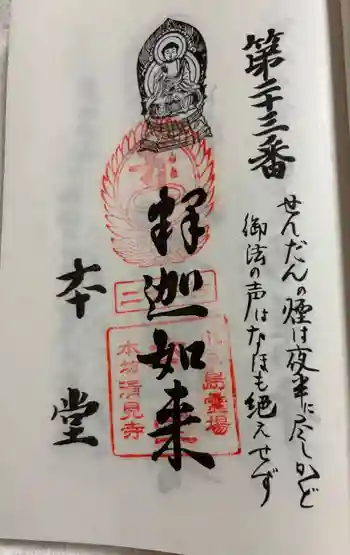 第二十三番
せんだんの煙は夜半に尽しかど
御法の声はなほも絶えせず
釋迦如来
本堂
島霊場
本村清見寺